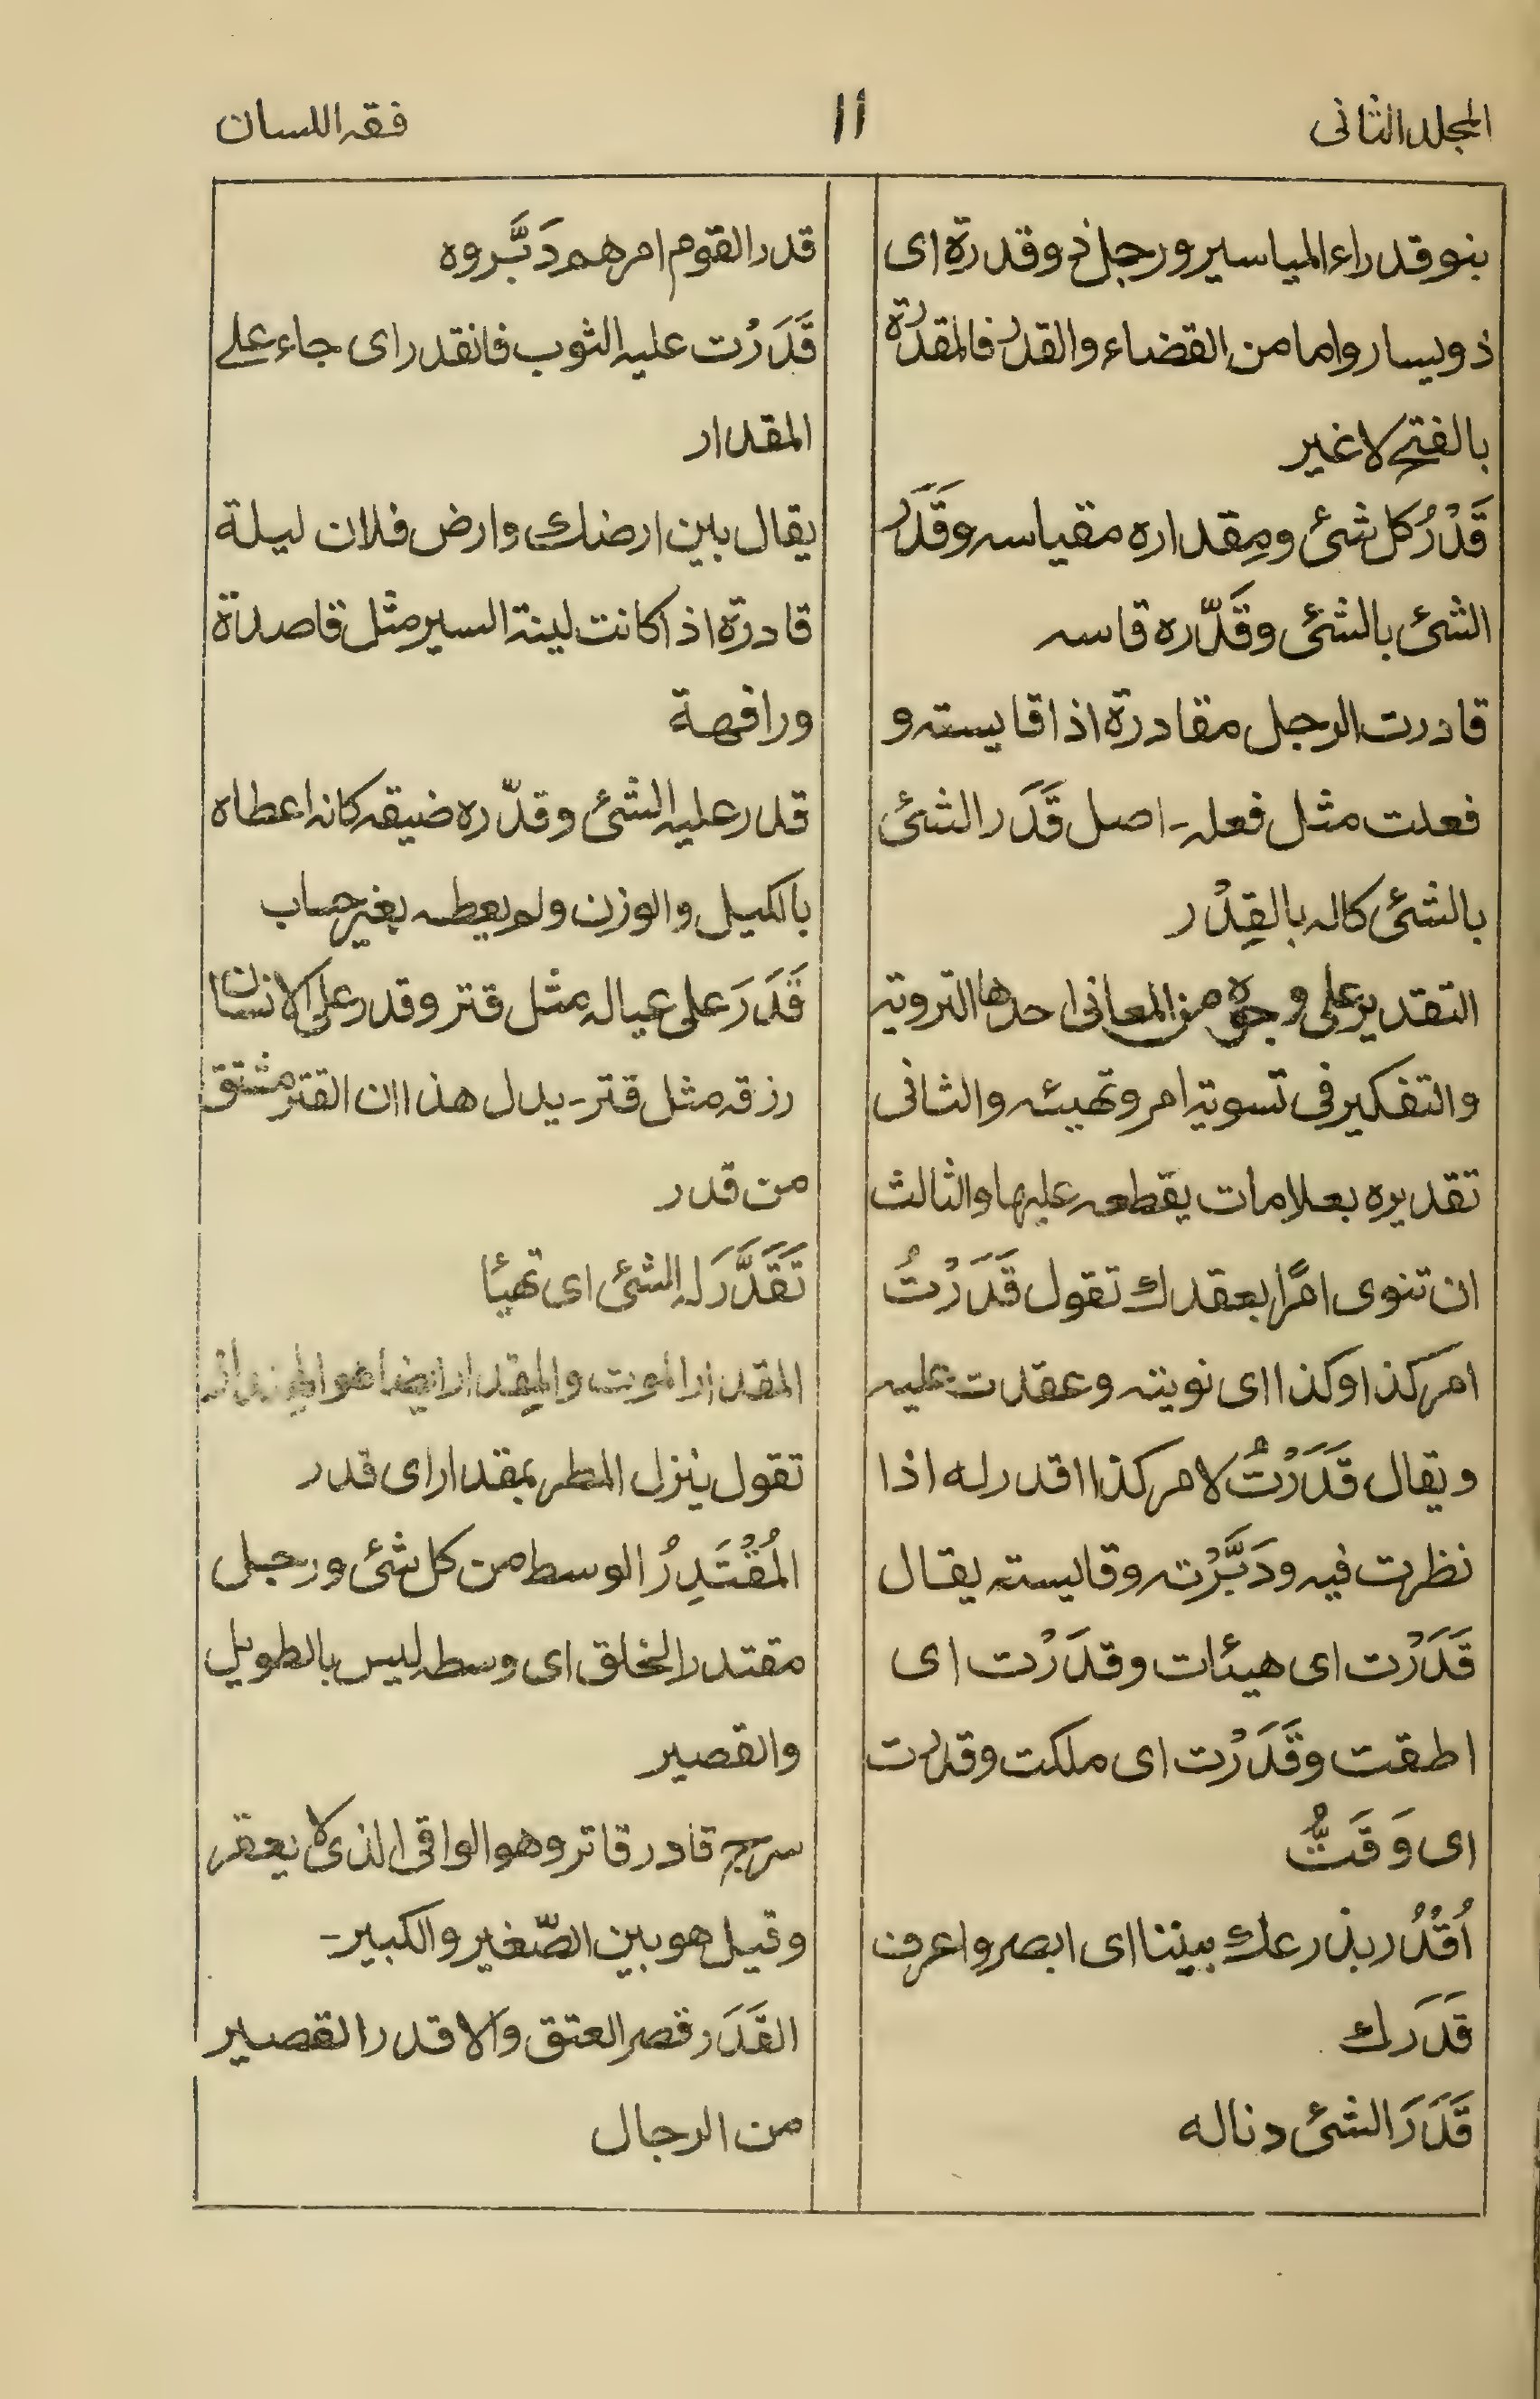 المجلد الثانی
۱۱
فقہ اللسان
بنو قدراء المیاسیر ورجل ذو قدرۃ ای
ذویسار واما من القضاء والقدر فالمقدرۃ
بالفتح لاغیر
قَدْرُ کل شئ ومِقدارہ مقیاسہ وقَدَر
الشئ بالشئ وقَدّرہ قاسہ
قادرت الرجل مقادرۃ اذا قایستہ و
فعلت مثل فعلہ - اصل قَدَر الشئ
بالشئ کالہ بالقِدْر
التقدیر علی وجوہ من المعانی احدها الترویۃ
والتفکیر فی تسویۃ امر وتهیئہ والثانی
تقدیرہ بعلامات یقطعہ علیها والثالث
ان تنوی امرًا بعقدك تقول قَدَرْتُ
امر کذا وکذا ای نویتہ وعقدت علیہ
ویقال قَدَرْتُ لامر کذا اقدر لہ اذا
نظرت فیہ ودَبَّرْتہ وقایستہ یقال
قَدَرْت ای هیئات وقدَرْت ای
اطقت وقَدَرْت ای ملکت وقدرت
ای وَقَتُّ
اُقْدُر بذرعك بیننا ای ابصر واعرف
قَدَرَك
قَدَرَ الشئ دنالہ
قدر القوم امرهم دَبَّروہ
قَدَرْت علیہ الثوب فانقدر ای جاء علی
المقدار
یقال بین ارضك وارض فلان لیلۃ
قادرۃ اذا کانت لینۃ السیر مثل قاصدۃ
ورافهۃ
قدر علیہ الشئ وقدّرہ ضیقہ کانہ اعطاہ
بالکیل والوزن ولم یعطہ بغیر حساب
قَدَرَ علی عیالہ مثل قتر وقدر علی الانسان
رزقہ مثل قتر - یدل هذا ان القتر مشتق
من قدر
تَقَدَّرَ لہ الشئ ای تهیئا
المقدار الموت والمِقدار ایضا هو
تقول ینزل المطر بمقدار ای قدر
المُقْتَدِرُ الوسط من کل شئ ورجل
مقتدر الخلق ای وسطہ لیس بالطویل
والقصیر
سرج قادر قاتر وهو الواقی الذی لا یعقر
وقیل هو بین الصّغیر والکبیر -
القَدَر قصر العتق والاقدر القصیر
من الرجال